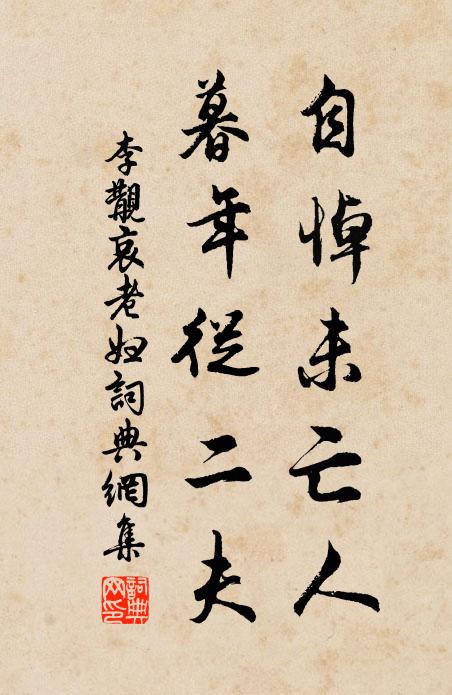 自悼未亡人
暮年從二夫
李覯哀老妇詞典網集
詞典
网印